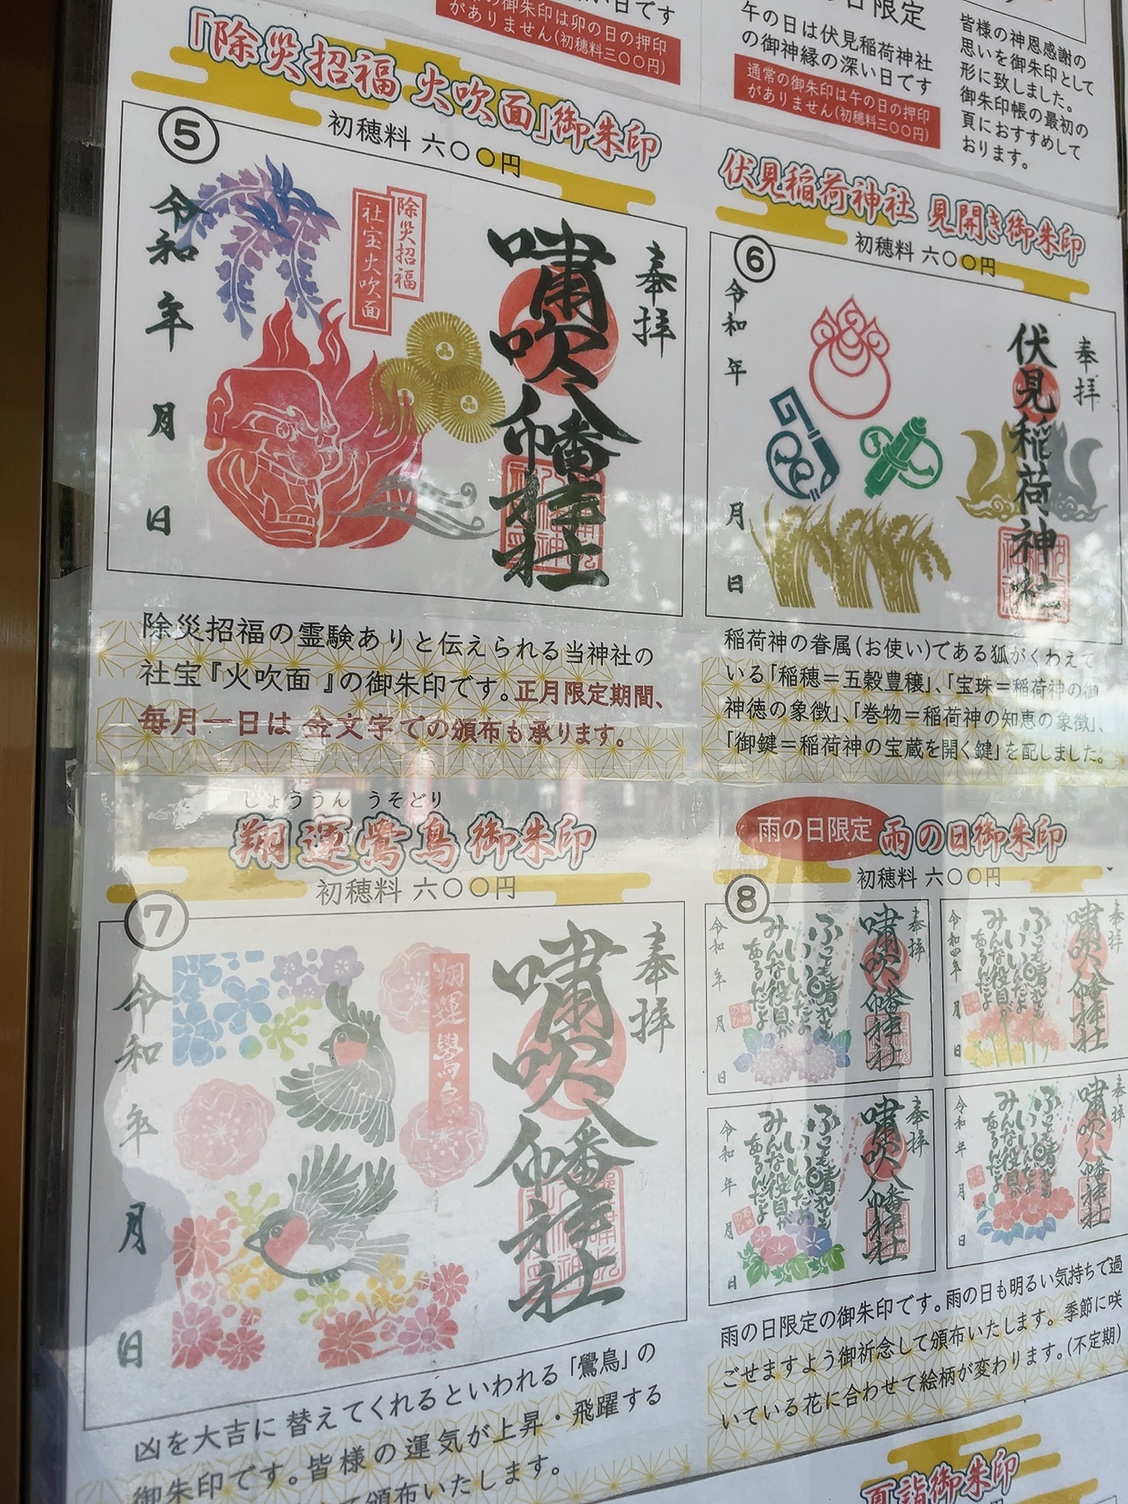 の御朱印は卯の日の押印
がありません(初穂料三〇〇円)
日限定
午の日は伏見稲荷神社
の御神縁の深い日です
通常の御朱印は午の日の押印
がありません(初穂料三〇〇円)
皆様の神恩感謝の
思いを御朱印として
形に致しました。
御朱印帳の最初の
頁におすすめして
おります。
「除災招福 火吹面」御朱印
⑤
初穂料 六〇〇円
奉拝
嘯吹八幡神社
除災招福
社宝火吹面
令和 年 月 日
除災招福の霊験ありと伝えられる当神社の
社宝『火吹面』の御朱印です。正月限定期間、
毎月一日は 金文字での頒布も承ります。
伏見稲荷神社 見開き御朱印
⑥
初穂料 六〇〇円
奉拝
伏見稲荷神社
令和 年 月 日
稲荷神の眷属(お使い)である狐がくわえて
いる「稲穂=五穀豊穣」、「宝珠=稲荷神の御
神徳の象徴」、「巻物=稲荷神の知恵の象徴」、
「御鍵=稲荷神の宝蔵を開く鍵」を配しました。
しょううん うそどり
翔運鷽鳥御朱印
⑦
初穂料 六〇〇円
奉拝
嘯吹八幡神社
翔運鷽鳥
令和 年 月 日
凶を大吉に 替えてくれるといわれる「鷽鳥」の
御朱印です。皆様の運気が上昇・飛躍する
頒布いたします。
雨の日限定
雨の日御朱印
⑧
初穂料 六〇〇円
奉拝
嘯吹八幡神社
ふっても晴れても
いいいんだよ
みんな役目が
あるんだよ
令和 年 月 日
奉拝
嘯吹八幡神社
ふっても晴れても
みんな役目が
あるんだよ
令和四年 月 日
奉拝
嘯吹八幡神社
ふっても晴れても
みんな役目が
あるんだよ
令和 年 月 日
奉拝
嘯吹八幡神社
ふっても晴れても
みんな役目が
あるんだよ
令和 年 月 日
雨の日限定の御朱印です。雨の日も明るい気持ちで過
ごせますよう御祈念して頒布いたします。季節に咲
いている花に合わせて絵柄が変わります。(不定期)
夏詣御朱印